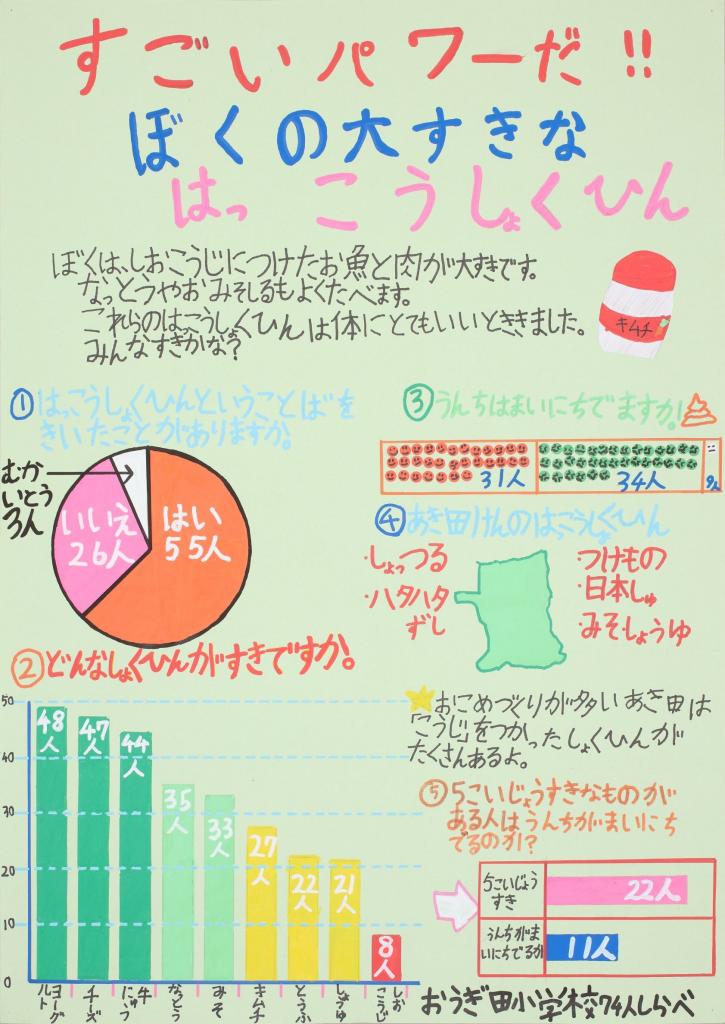 すごいパワーだ!!
ぼくの大すきな
はっこうしょくひん
ぼくは、しおこうじにつけたお魚と肉が大すきです。
なっとうやおみそしるもよくたべます。
これらのはっこうしょくひんは体にとてもいいとききました。
みんなすきかな?
キムチ
① はっこうしょくひんということばを
きいたことがありますか。
むかいとう
3人
いいえ
26人
はい
55人
② どんなしょくひんがすきですか。
50
40
30
20
10
0
48人
47人
44人
35人
33人
27人
22人
21人
8人
ヨーグルト
チーズ
牛にゅう
なっとう
みそ
キムチ
とうふ
しょうゆ
しおこうじ
③ うんちはまいにちでますか。
31人
34人
9人
④ あき田けんのはっこうしょくひん
・しょっつる
・ハタハタずし
・つけもの
・日本しゅ
・みそ・しょうゆ
おこめづくりが多いあき田は
「こうじ」をつかったしょくひんが
たくさんあるよ。
⑤ 5こいじょうすきなものが
ある人はうんちがまいにち
でるのか?
5こいじょう
すき
22人
うんちがま
いにちでるか
11人
おうぎ田小学校74人しらべ